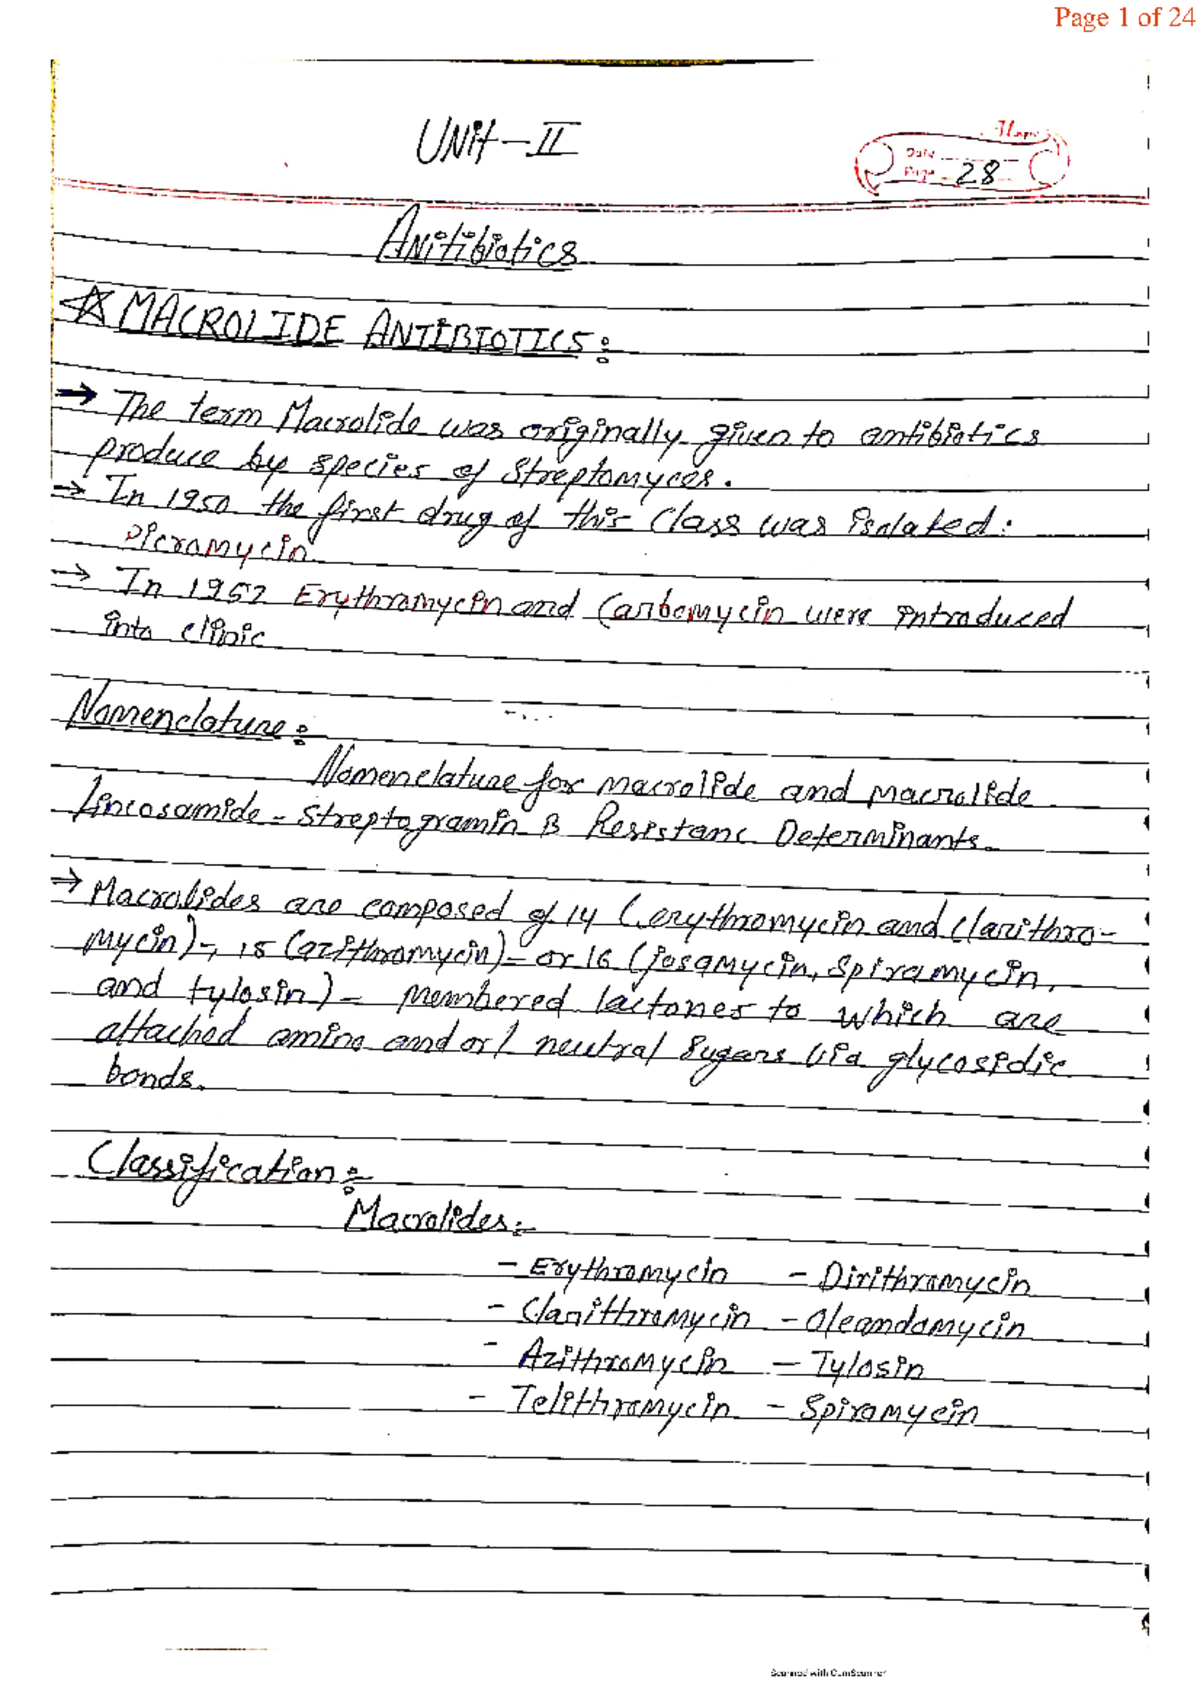 Page 1 of 24
UNit-II
Date
Page 28
Anitibiotics
☆ MACROLIDE ANTIBIOTICS:
→ The term Macrolide was originally given to antibiotics
produce by species of Streptomyces.
→ In 1950 the first drug of this class was isolated:
Picromycin
→ In 1952 Erythromycin and Carbomycin were introduced
into clinic
Nomenclature:
Nomenclature for macrolide and macrolide
Lincosamide - Streptogramin B Resistanc Determinants.
→ Macrolides are composed of 14 (erythromycin and clarithro-
mycin)-, 15 (azithromycin)- or 16 (josamycin, spiramycin,
and tylosin)- membered lactones to which are
attached amino and or/ neutral sugars via glycosidic
bonds.
Classification:
Macrolides:-
- Erythromycin - Dirithramycin
- Clarithromycin - Oleandomycin
- Azithromycin - Tylosin
- Telithromycin - Spiramycin
Scanned with CamScanner